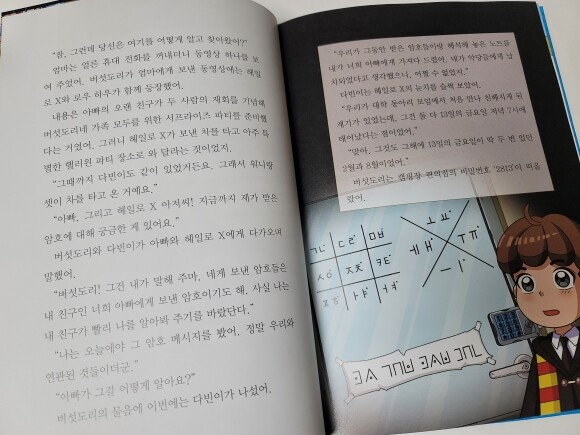 “참, 그런데 당신은 여기를 어떻게 알고 찾아왔어?”
엄마는 얼른 휴대 전화를 꺼내더니 동영상 하나를 보
여 주었다. 버섯도리가 엄마에게 보낸 동영상에는 헤일
로 X와 로우 하우가 함께 등장했다.
내용은 아빠의 오랜 친구가 두 사람의 재회를 기념해
버섯도리네 가족 모두를 위한 서프라이즈 파티를 준비했
다는 거였어. 그러니 헤일로 X가 보낸 차를 타고 아주 특
별한 핼러윈 파티 장소로 와 달라는 것이었지.
“그때까지 다빈이도 같이 있었거든요. 그래서 워니랑
셋이 차를 타고 온 거예요.”
“아빠, 그리고 헤일로 X 아저씨! 지금까지 제가 받은
암호에 대해 궁금한 게 있어요.”
버섯도리와 다빈이가 아빠와 헤일로 X에게 다가오며
말했어.
“버섯도리! 그건 내가 말해 주마. 네게 보낸 암호들은
내 친구인 너희 아빠에게 보낸 암호이기도 해. 사실 나는
내 친구가 빨리 나를 알아봐 주기를 바랐단다.”
“나는 오늘에야 그 암호 메시지를 봤어. 정말 우리와
연관된 것들이더군.”
“아빠가 그걸 어떻게 알아요?”
버섯도리의 물음에 이번에는 다빈이가 나섰어.
“우리가 그동안 받은 암호들이랑 해석해 놓은 노트를
내가 너희 아빠에게 가져다 드렸어. 내가 악당들에게 납
치되었다고 생각했으니, 어쩔 수 없었지.”
다빈이는 헤일로 X의 눈치를 슬쩍 보았어.
“우리가 대학 동아리 모임에서 처음 만나 친해지게 된
계기가 있었는데, 그건 둘 다 13일의 금요일 저녁 7시에
태어났다는 점이었어.”
“맞아. 그것도 그해에 13일의 금요일이 딱 두 번 있던
2월과 8월이었어.”
버섯도리는 캠핑장 편의점의 비밀번호 ‘2813’이 떠올
랐어.
ㄱㄴ ㄷㄹ ㅁㅂ
ㅅㅇ ㅈㅊ ㅋㅌ
ㅍㅎ ㅏㅑ ㅓㅕ
ㅗㅛ
ㅔㅐ ㅜㅠ
ㅡㅣ